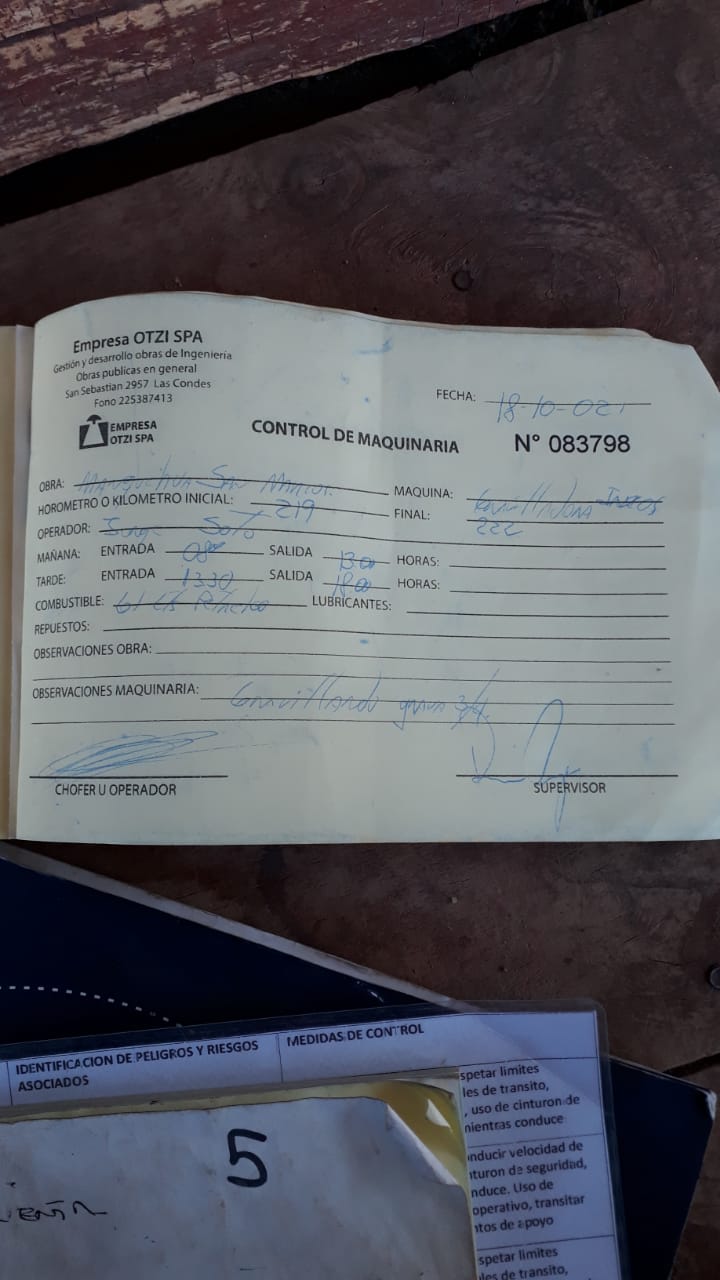 Empresa OTZI SPA
Gestión y desarrollo obras de Ingeniería
Obras publicas en general
San Sebastian 2957 Las Condes
Fono 225387413
EMPRESA
OTZI SPA
FECHA: 18-10-021
CONTROL DE MAQUINARIA N° 083798
OBRA: San MAQUINA: Gravilladora
HOROMETRO O KILOMETRO INICIAL: 219 FINAL: 222
OPERADOR: Jorge Soto
MAÑANA: ENTRADA 08 SALIDA 13.00 HORAS:
TARDE: ENTRADA 13.30 SALIDA 18.00 HORAS:
COMBUSTIBLE: LUBRICANTES:
REPUESTOS:
OBSERVACIONES OBRA:
OBSERVACIONES MAQUINARIA: Gravillando grava 3/4
CHOFER U OPERADOR SUPERVISOR
IDENTIFICACION DE PELIGROS Y RIESGOS
ASOCIADOS
MEDIDAS DE CONTROL
spetar limites
les de transito,
, uso de cinturon de
mientras conduce
nducir velocidad de
nturon de seguridad,
nduce. Uso de
operativo, transitar
ntos de apoyo
spetar limites
les de transito,
5